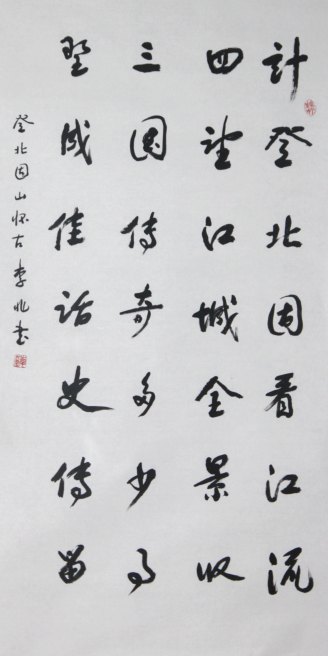 計登北固看江流
四望江城全景收
三国傳奇多少事
堅成佳話史傳留
登北固山怀古 李兆书